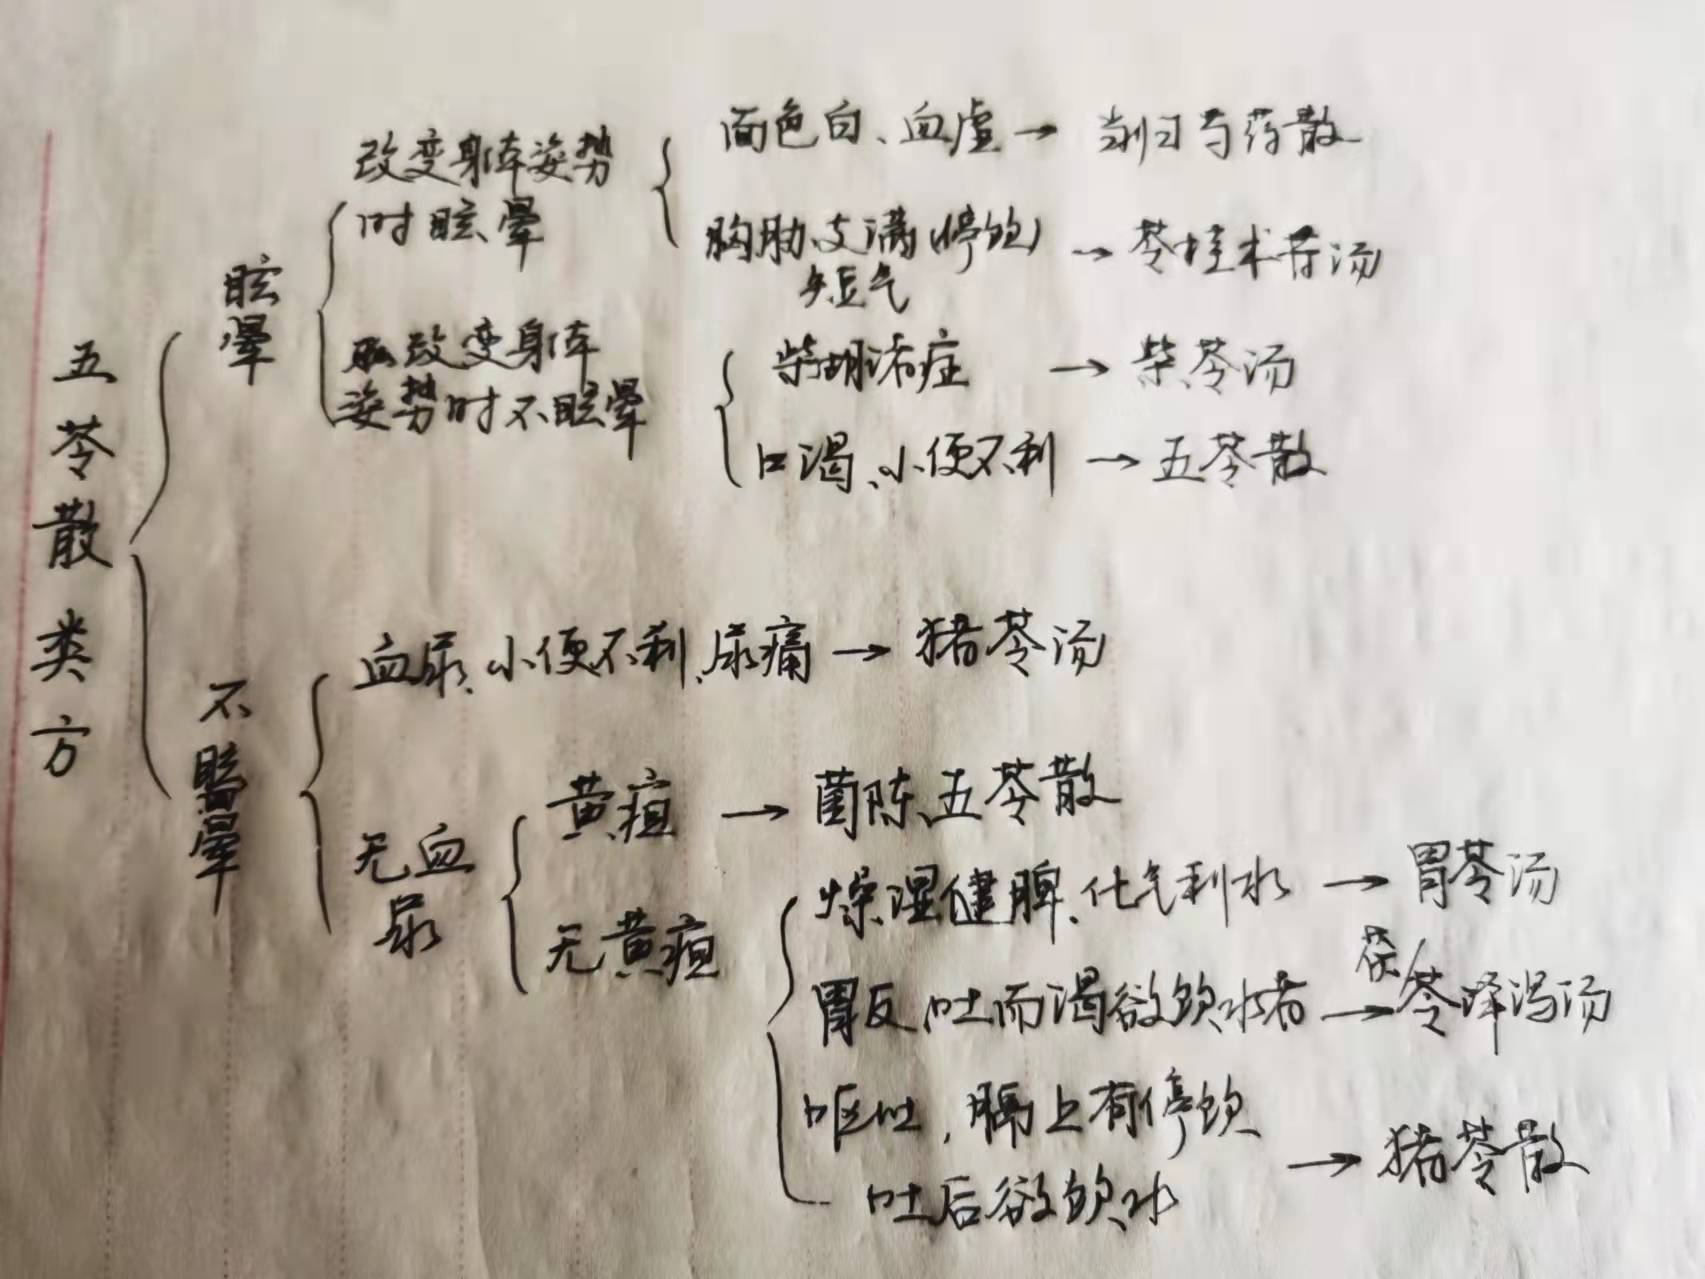 五苓散类方
眩晕
改变身体姿势
时眩晕
面色白、血虚→当归芍药散
胸胁支满(停饮)
短气
→苓桂术甘汤
改变身体
姿势时不眩晕
柴胡诸症→柴苓汤
口渴、小便不利→五苓散
不眩晕
血尿、小便不利、尿痛→猪苓汤
无血
尿
黄疸→茵陈五苓散
无黄疸
燥湿健脾、化气利水→胃苓汤
胃反,吐而渴欲饮水者→茯苓泽泻汤
呕吐,膈上有停饮
吐后欲饮水
→猪苓散